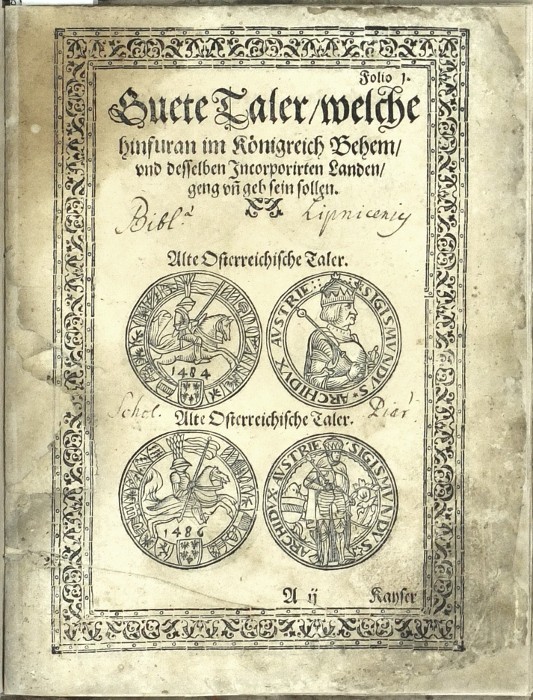 Folio 1.
Guete Taler/welche
hinfuran im Königreich Behem/
vnd desselben Incorporirten Landen/
geng vñ geb sein sollen.
Bibl.ᵃ Lipnicensis
Alte Osterreichische Taler.
1484
SIGISMVNDVS ARCHIDVX AVSTRIE
Schol. Piar.
Alte Osterreichische Taler.
1486
SIGISMVNDVS ARCHIDVX AVSTRIE
A ij Kayser